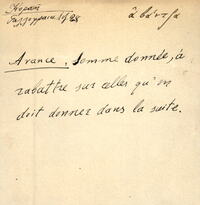 Κοραῆ
ἀβάντζα
Avance. Somme donnée, à
rabattre sur celles qu'on
doit donner dans la suite.